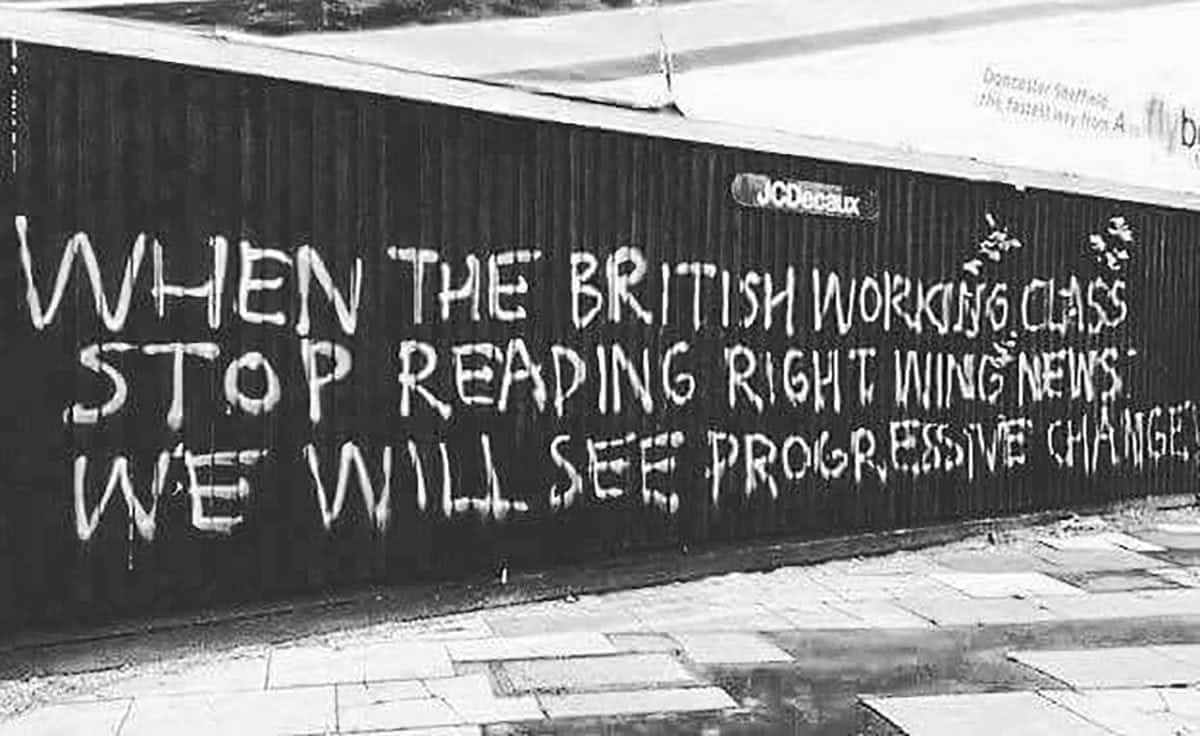 Doncaster Sheffield
the fastest way from A
flyb
JCDecaux
WHEN THE BRITISH WORKING CLASS
STOP READING RIGHT WING NEWS
WE WILL SEE PROGRESSIVE CHANGE